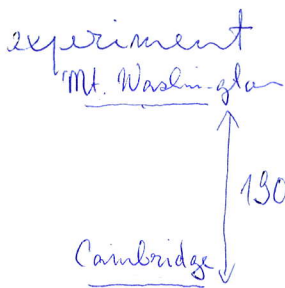 experiment
Mt. Washington
190
Cambridge